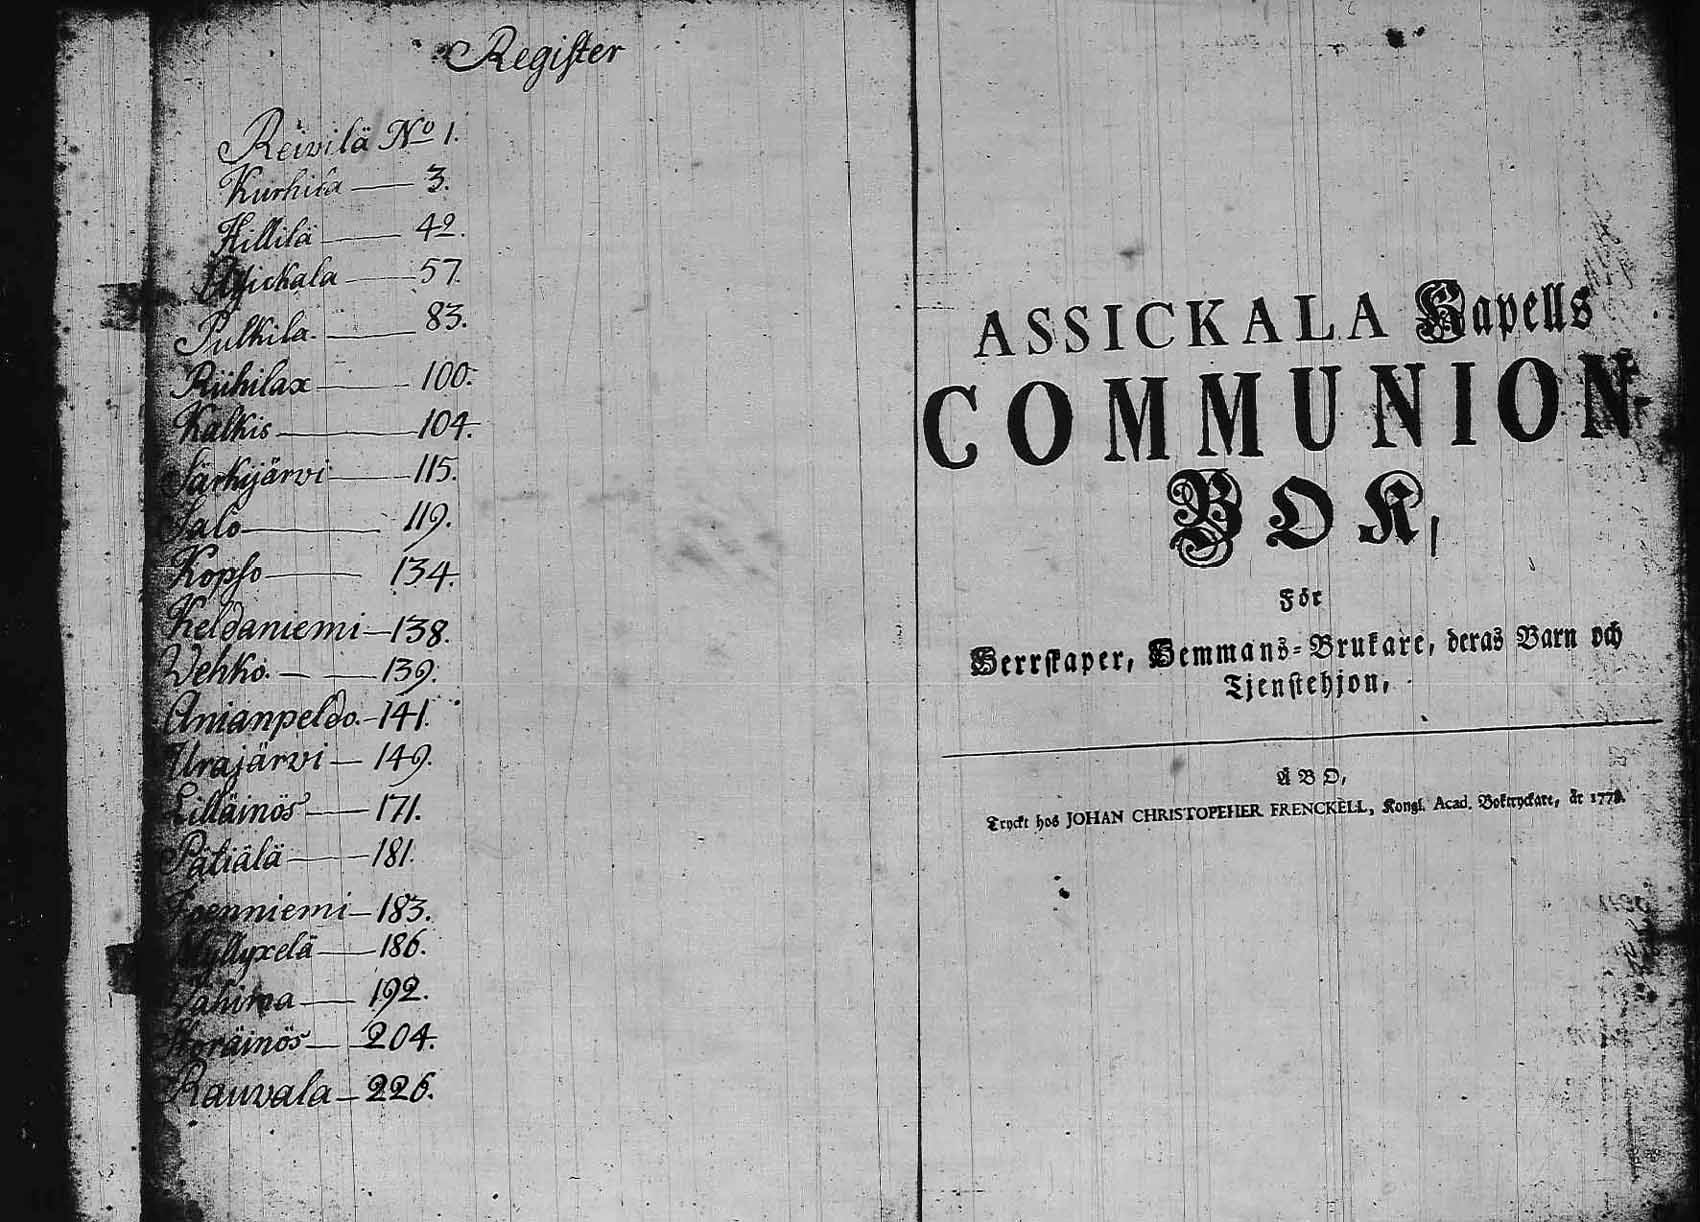 Register
Reivilä No 1.
Kurhila — 3.
Hillilä — 42.
Assickala — 57.
Pulkila. — 83.
Riihilax — 100.
Kalkis — 104.
Särkijärvi — 115.
Salo — 119.
Kopso — 134.
Keldaniemi — 138.
Wehko. — 139.
Anianpeldo. — 141.
Urajärvi — 149.
Lilläinös — 171.
Pätiälä — 181.
Isenniemi — 183.
Myllyxelä — 186.
Vahima — 192.
Koräinös — 204.
Rauvala — 226.
ASSICKALA Kapells
COMMUNION-
BOK,
För
Herrskaper, Hemmans-Brukare, deras Barn och
Tjenstehjon,
ÅBO,
Tryckt hos JOHAN CHRISTOPEHER FRENCKELL, Kongl. Acad. Boktryckare, år 1778.